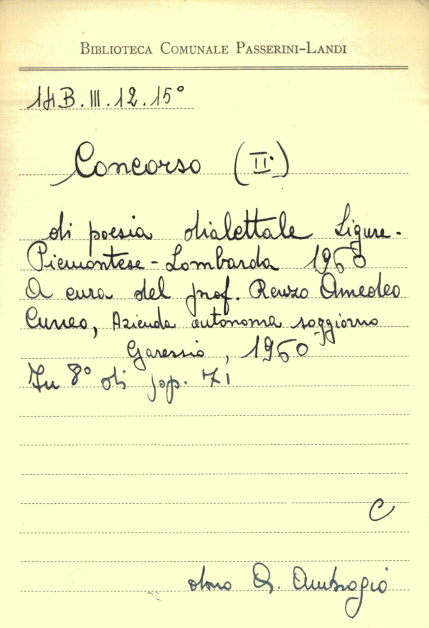 BIBLIOTECA COMUNALE PASSERINI-LANDI
14B.III.12.15°
Concorso (II°)
di poesia dialettale Ligure-
Piemontese-Lombarda 1960
A cura del prof. Renzo Amedeo
Cuneo, Azienda autonoma soggiorno
Garessio, 1960
In 8° di pp. 71
C
dono Ambrogio